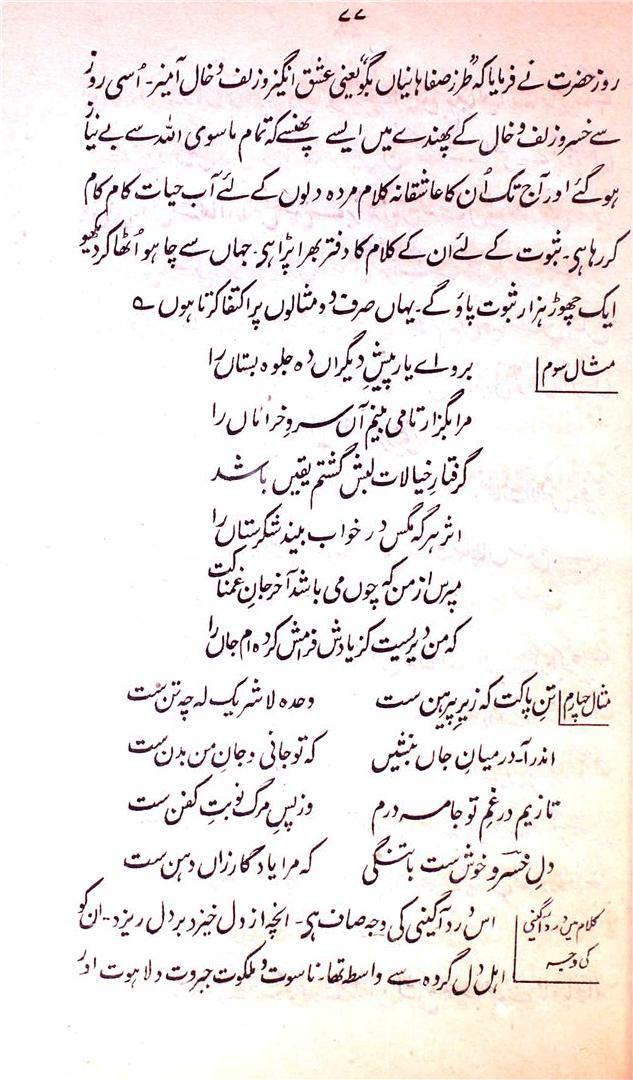 ۷۷
روز حضرت نے فرمایا کہ "طرز صفاہانیاں بگو" یعنی عشق انگیز و زلف و خال آمیز۔ اُسی روز
سے خسرو زلف و خال کے پھندے میں ایسے پھنسے کہ تمام ماسوی اللہ سے بے نیاز
ہو گئے اور آج تک اُن کا عاشقانہ کلام مردہ دلوں کے لئے آب حیات کا کام
کر رہا ہی۔ ثبوت کے لئے ان کے کلام کا دفتر بھرا پڑا ہی۔ جہاں سے چاہو اُٹھا کر دیکھو
ایک چھوڑ ہزار ثبوت پاؤ گے۔ یہاں صرف دو مثالوں پر اکتفا کرتا ہوں ؎
مثال سوم برو اے یار پیشِ دیگراں دہ جلوہ بستاں را
مرا بگزار تا می بینم آں سروِ خراماں را
گرفتارِ خیالات لبش گشتم یقیں باشد
اثر ہر گہ مگس در خواب بیند شکرستاں را
مپرس از من کہ چوں می باشد آخر جانِ غمناکت
کہ من دیریست کز یادش فرامش کردہ ام جاں را
مثال چہارم تنِ پاکت کہ زیرِ پیرہن ست وحدہ لا شریک لہ چہ تن ست
اندر آ۔ در میانِ جاں بنشیں کہ تو جانی و جانِ من بدن ست
تا زیم در غمِ تو جامہ درم وز پسِ مرگ نوبتِ کفن ست
دلِ خسرو خوش ست با تنگی کہ مرا یادگار زاں دہن ست
کلام میں درد آگینی کی وجہ
اس درد آگینی کی وجہ صاف ہی۔ انچہ از دل خیزد بر دل ریزد۔ ان کو
اہل دل گروہ سے واسطہ تھا۔ ناسوت و ملکوت جبروت و لاہوت اور